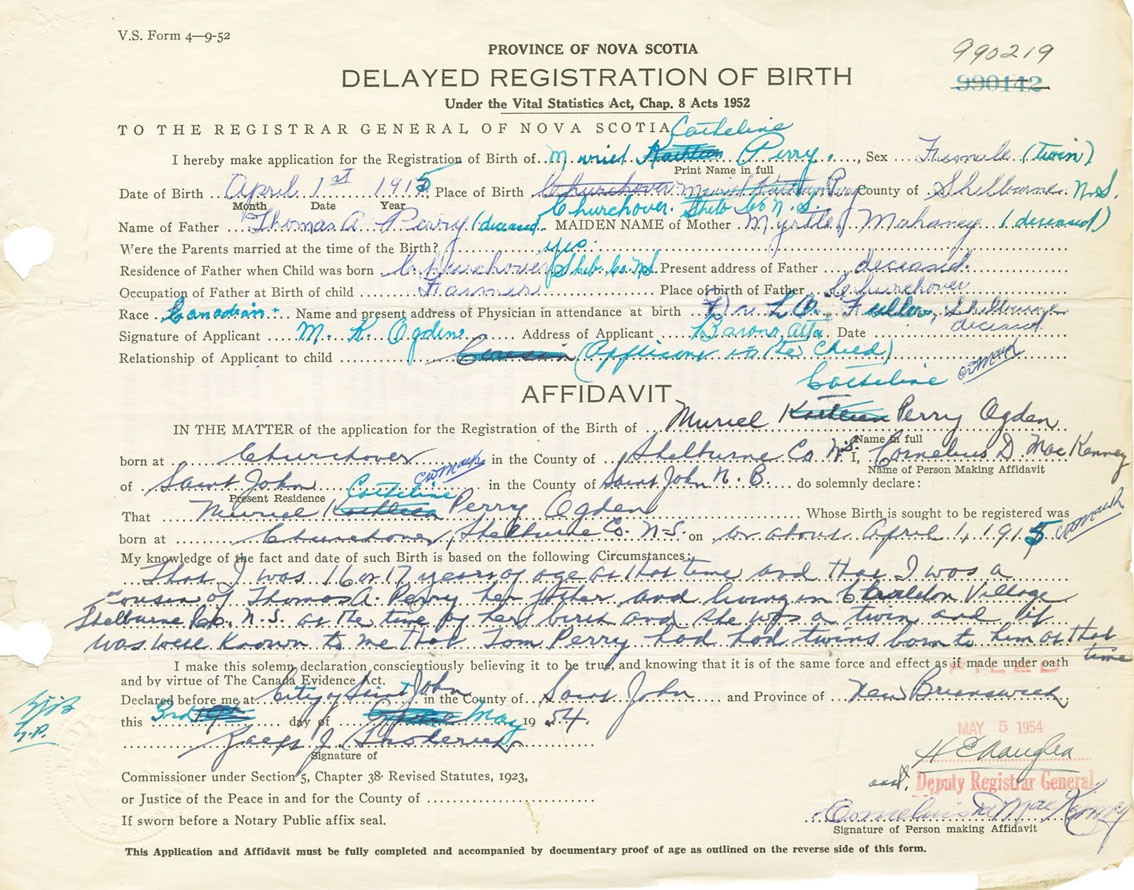 V.S. Form 4—9-52
PROVINCE OF NOVA SCOTIA
990219
DELAYED REGISTRATION OF BIRTH
990142
Under the Vital Statistics Act, Chap. 8 Acts 1952
TO THE REGISTRAR GENERAL OF NOVA SCOTIA
Catheline
I hereby make application for the Registration of Birth of Muriel Kathleen Perry, Sex Female (twin)
Print Name in full
Date of Birth April 1st 1915 Place of Birth Churchover Muriel Kathleen Perry County of Shelburne N.S.
Month Date Year Churchover. Shelb Co N.S.
Name of Father Thomas A. Perry (deceased MAIDEN NAME of Mother Myrtle Mahaney (deceased)
Were the Parents married at the time of the Birth? yes.
Residence of Father when Child was born Churchover Shelb. Co. N.S. Present address of Father deceased.
Occupation of Father at Birth of child Farmer Place of birth of Father Churchover
Race Canadian. Name and present address of Physician in attendance at birth Dr. L.O. Fuller, Shelburne
deceased
Signature of Applicant M. K. Ogden Address of Applicant Barons, Alta Date
Relationship of Applicant to child Cousin (Applicant is the Child)
Catheline
AFFIDAVIT
IN THE MATTER of the application for the Registration of the Birth of Muriel Kathleen Perry Ogden
Name in full
born at Churchover in the County of Shelburne Co. N.S. I, Cornelius D. MacKenney
Name of Person Making Affidavit
of Saint John in the County of Saint John N.B. do solemnly declare:
Present Residence Catheline
That Muriel Kathleen Perry Ogden Whose Birth is sought to be registered was
born at Churchover, Shelburne Co. N.S. on or about April 1, 1915
My knowledge of the fact and date of such Birth is based on the following Circumstances:
That I was 16 or 17 years of age at that time and that I was a
cousin of Thomas A. Perry her father and living in Village
Shelburne Co. N.S. at the time of her birth and she was a twin and it
was well known to me that Tom Perry had had twins born to him at that time
I make this solemn declaration, conscientiously believing it to be true, and knowing that it is of the same force and effect as if made under oath
and by virtue of The Canada Evidence Act.
FILED
Declared before me at City of Saint John in the County of Saint John and Province of New Brunswick
this 3rd day of May 1954.
MAY 5 1954
Signature of
Deputy Registrar General
Commissioner under Section 5, Chapter 38 Revised Statutes, 1923,
or Justice of the Peace in and for the County of
Cornelius D MacKenney
If sworn before a Notary Public affix seal.
Signature of Person making Affidavit
This Application and Affidavit must be fully completed and accompanied by documentary proof of age as outlined on the reverse side of this form.